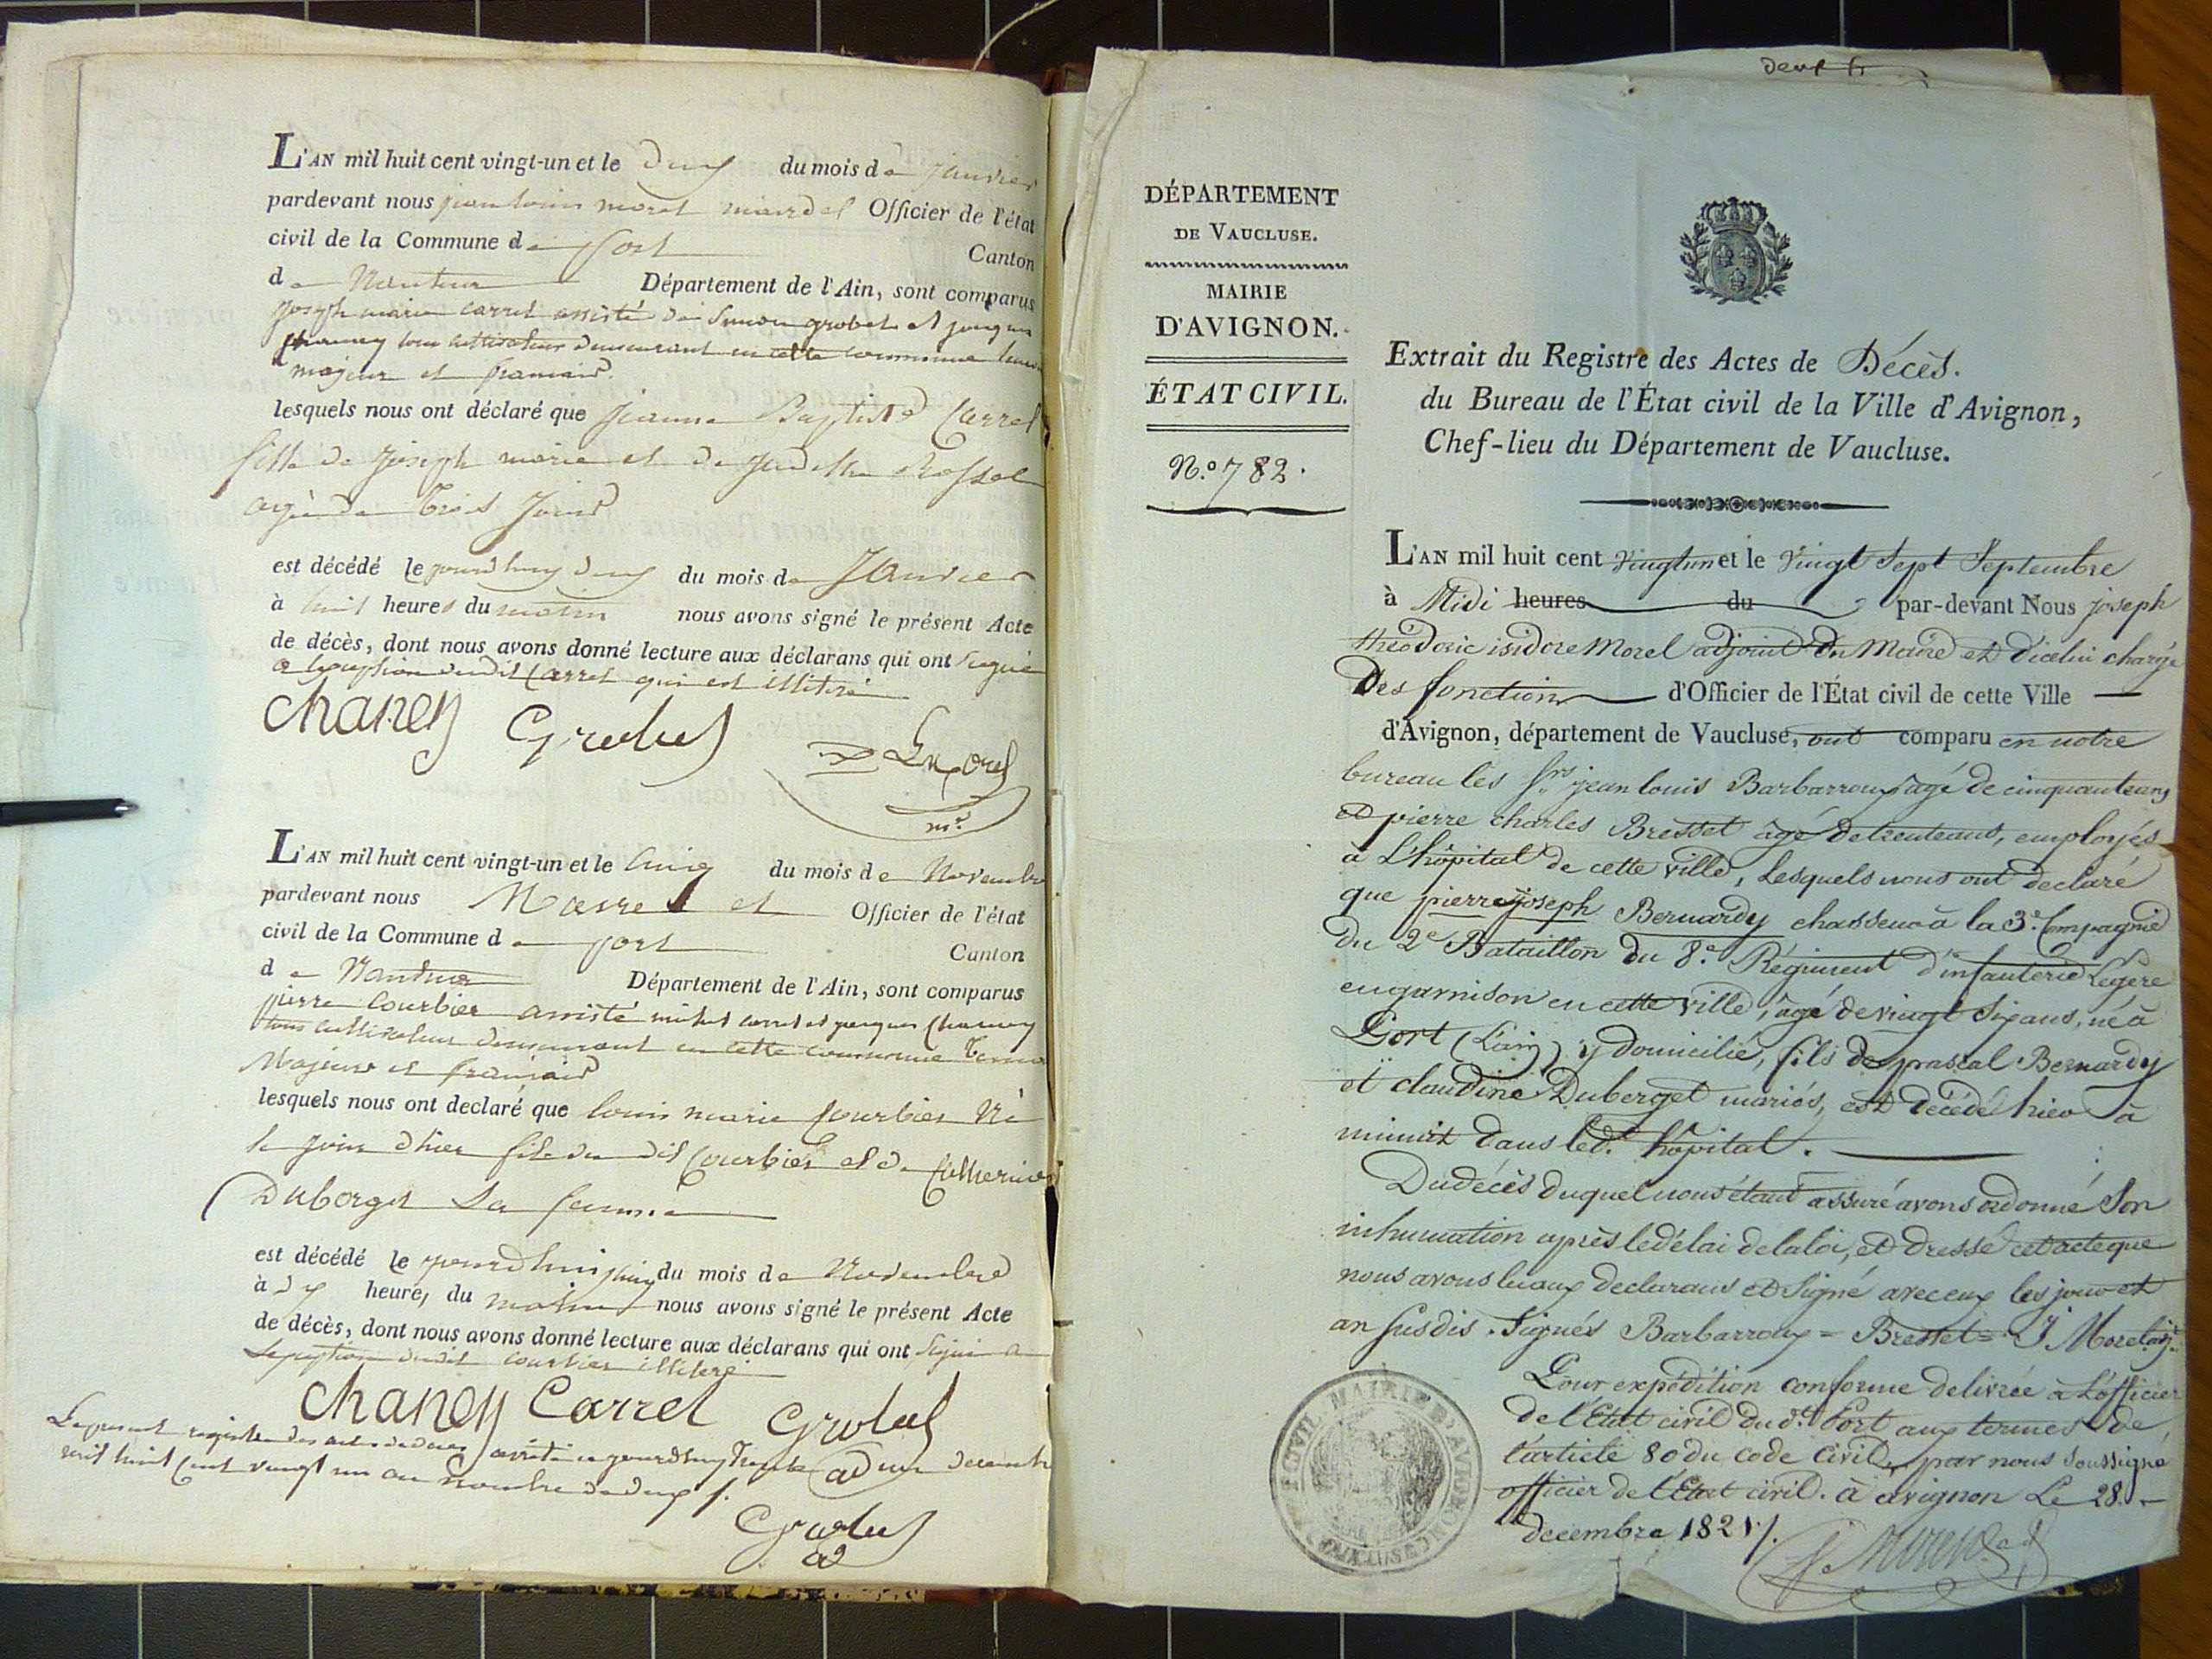 L'AN mil huit cent vingt-un et le deux du mois de janvier
pardevant nous jean louis morel maire et Officier de l'état
civil de la Commune de port Canton
de Nantua Département de l'Ain, sont comparus
joseph marie carrel assisté de simon grobet et jacques
chaney tous cultivateurs demeurant en cette commune tous
majeur et francaid
lesquels nous ont déclaré que jeanne Baptiste Carrel
fille de joseph marie et de
agé de trois jours
est décédé le jourdhuy deux du mois de Janvier
à huit heures du matin nous avons signé le présent Acte
de décès, dont nous avons donné lecture aux déclarans qui ont signé
a lexception dudit Carrel qui est illitéré
chaney Grobet
Lx morel
mre
L'AN mil huit cent vingt-un et le cinq du mois de Novembre
pardevant nous Maire et Officier de l'état
civil de la Commune de port Canton
de Nantua Département de l'Ain, sont comparus
pierre Courbier assisté michel carrel et jacques Chaney
tous cultivateurs demeurant en cette commune tous
Majeurs et francaid
lesquels nous ont declaré que louis marie Courbier Né
le jour dhier fils du dit Courbier et de Catherine
Duborget Sa femme
est décédé le jourdhui cinq du mois de Novembre
à dix heure, du matin nous avons signé le présent Acte
de décès, dont nous avons donné lecture aux déclarans qui ont Signé a
Lexception dudit courbier illiteré
chaney Carrel Grobet
Le present registre des actes de deces arrété ce jourdhuy trente un decembre
mil huit Cent vingt un au nombre de deux
Grobet
ad
DÉPARTEMENT
DE VAUCLUSE.
MAIRIE
D'AVIGNON.
ÉTAT CIVIL.
N.º 782.
Extrait du Registre des Actes de Décès.
du Bureau de l'État civil de la Ville d'Avignon,
Chef-lieu du Département de Vaucluse.
L'AN mil huit cent vingtun et le vingt Sept Septembre
à Midi heures du par-devant Nous joseph
théodoric isidore Morel adjoint du Maire et d'icelui chargé
Des fonctions d'Officier de l'État civil de cette Ville
d'Avignon, département de Vaucluse, ont comparu en notre
bureau les Srs jean louis Barbarroux agé de cinquanteans
et pierre charles Bresset âgé detrenteans, employés
à L'hôpital de cette ville, Lesquels nous ont declaré
que pierre joseph Bernardy chasseur à la 3e Compagnie
du 2e Bataillon du 8e Régiment d'infanterie Legere
en garnison en cette ville, âgé de vingt Sixans, né à
Port (L'ain) y domicilié, fils de pascal Bernardy
et claudine Duberget mariés, est décédé hier à
minuit dans led.t hôpital.
Du décès duquel nous étant assuré avons ordonné Son
inhumation après le délai de la loi, et dressé cet acte que
nous avons lu aux declarans et signé avec eux les jour et
an susdis. Signés Barbarroux = Bresset = J. Morel adjt.
Pour expédition conforme delivrée à L'officier
de l'Etat civil dud.t Port aux termes de
l'article 80 du code Civil, par nous soussigné
officier de l'Etat civil. à avignon Le 28.
decembre 1821.